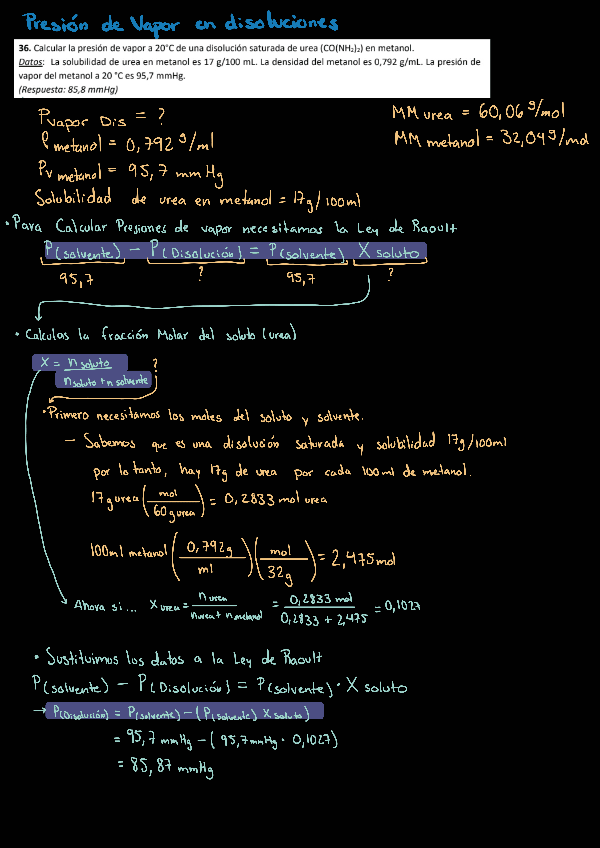 Presión de Vapor en disoluciones
36. Calcular la presión de vapor a 20°C de una disolución saturada de urea (CO(NH₂)₂) en metanol.
Datos: La solubilidad de urea en metanol es 17 g/100 mL. La densidad del metanol es 0,792 g/mL. La presión de
vapor del metanol a 20 °C es 95,7 mmHg.
(Respuesta: 85,8 mmHg)
Pvapor Dis = ?
MM urea = 60,06 g/mol
ρ metanol = 0,792 g/ml
MM metanol = 32,04 g/mol
Pv metanol = 95,7 mm Hg
Solubilidad de urea en metanol = 17g/100ml
• Para Calcular Presiones de vapor necesitamos la Ley de Raoult
P(solvente) - P(Disolución) = P(solvente) X soluto
95,7 ? 95,7 ?
• Calculas la fracción Molar del soluto (urea)
X = n soluto ?
n soluto + n solvente
• Primero necesitamos los moles del soluto y solvente.
- Sabemos que es una disolución saturada y solubilidad 17g/100ml
por lo tanto, hay 17g de urea por cada 100ml de metanol.
17 g urea (mol / 60 g urea) = 0,2833 mol urea
100ml metanol (0,792g / ml) (mol / 32g) = 2,475 mol
Ahora si... X urea = n urea / n urea + n metanol = 0,2833 mol / 0,2833 + 2,475 = 0,1027
• Sustituimos los datos a la Ley de Raoult
P(solvente) - P(Disolución) = P(solvente) · X soluto
→ P(Disolución) = P(solvente) - (P(solvente) X soluto)
= 95,7 mmHg - (95,7 mmHg · 0,1027)
= 85,87 mmHg